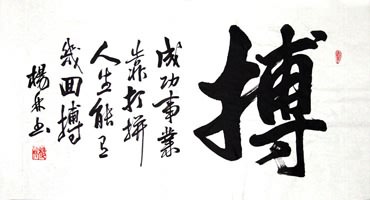 搏
成功事業
靠打拼
人生能有
幾回搏
楊永書